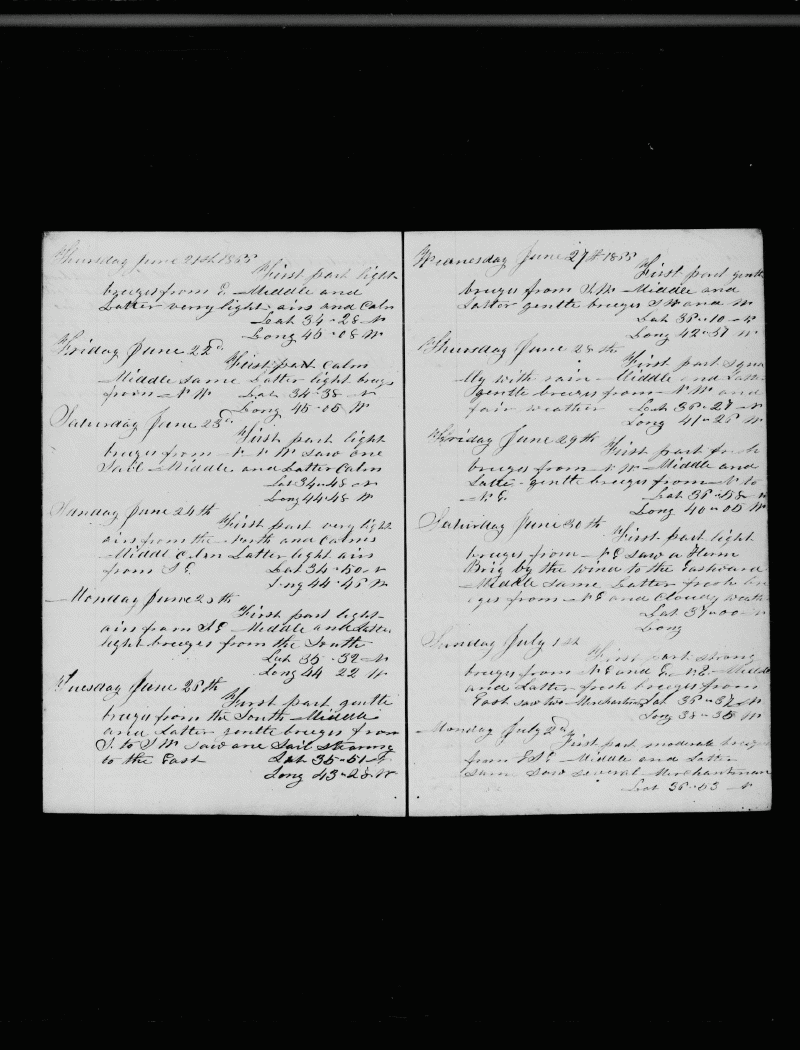 Thursday June 21st 1855
First part light
breezes from E. Middle and
Latter very light airs and Calm
Lat 34-28-N
Long 45-08 W
Friday June 22d
First part Calm
Middle same Latter light breezes
from N W Lat 34-38-N
Long 45-05 W
Saturday June 23d
First part light
breezes from N N W saw one
Sail Middle and Latter Calm
Lat 34-48-N
Long 44-48 W
Sunday June 24th
First part very light
airs from the North and Calms
Middl Calm Latter light airs
from S E. Lat 34-50-N
Long 44-45 W
Monday June 25th
First part light
airs from S E Middle and Latter
light breezes from the South
Lat 35-32-N
Long 44 22 W
Tuesday June 26th
First part gentle
breezes from the South Middle
and Latter gentle breezes from
S. to S W saw one Sail steering
to the East Lat 35-51-N
Long 43-28-W
Wednesday June 27th 1855
First part gentle
breezes from S.W. Middle and
Latter gentle breezes S W and W
Lat 35-10-N
Long 42-37 W
Thursday June 28th
First part squa
lly with rain Middle and Latter
gentle breezes from N W and
fair weather Lat 36-27-N
Long 41-26 W
Friday June 29th
First part fresh
breezes from N W Middle and
Latter gentle breezes from N to
N E. Lat 36-58-N
Long 40-05 W
Saturday June 30th
First part light
breezes from N E saw a Herm
Brig by the wind to the Eastward
Middle same Latter fresh bre
ezes from N E and Cloudy weath
Lat 37-00-N
Long
Sunday July 1st
First part strong
breezes from N E and E. N E. Middle
and Latter fresh breezes from
East saw two Merchantmen Lat 36-37-N
Long 38-35 W
Monday July 2d
First part moderate breezes
from E S E Middle and Latter
same saw several Merchantman
Lat 36-03-N